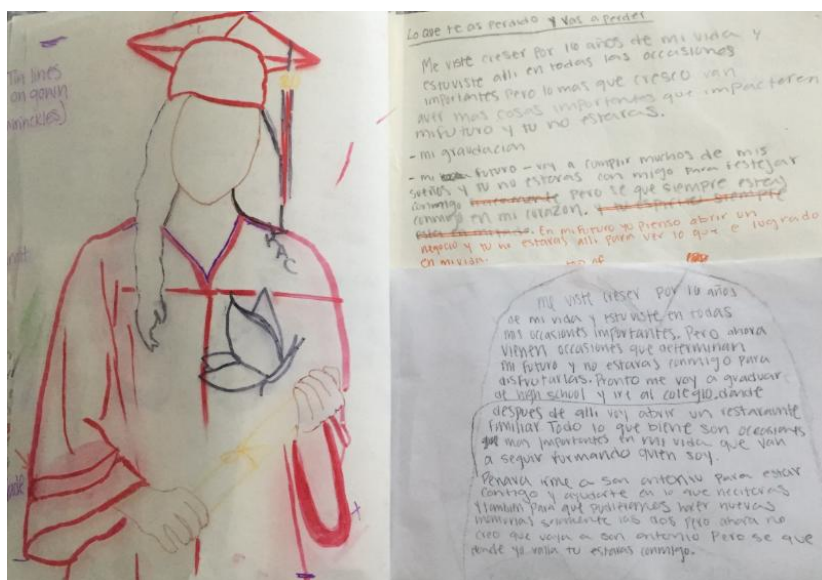 Thin lines
on gown
wrinckles)
KPC
Lo que te as perdido y vas a perder
Me viste creser por 10 años de mi vida y
estuviste alli en todas las occasiones
importantes pero lo mas que cresco van
aver mas cosas importantes que impacteren
mi futuro y tu no estaras.
- mi graudacion
- mi futuro - voy a complir muchos de mis
sueños y tu no estaras con migo para festejar
conmigo pero se que siempre estas
conmigo en mi corazon. y tu espiritu siempre
En mi futuro yo pienso abrir un
negocio y tu no estaras alli para ver lo que e lograd o
en mi vida.
Me viste creser por 10 años
de mi vida y estuviste en todas
mis occasiones importantes. Pero ahora
vienen occasiones que determinan
mi futuro y no estaras conmigo para
disfrutarlas. Pronto me voy a graduar
de high school y ire al colegio, donde
despues de alli voy abrir un restarante
familiar. Todo lo que biene son occasions
mas importantes en mi vida que van
a seguir formando quien soy.
Pensava irme a san antonio para estar
contigo y ayudarte en lo que neciteras
Y tambien para que pudieramos hacer nuevas
memorias solamente los dos pero ahora no
creo que vaya a san antonio Pero se que
donde yo valla tu estaras conmigo.